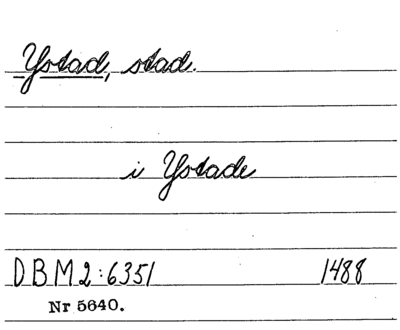 Ystad, stad.
i Ystade
DBM2:6351 1488
Nr 5640.